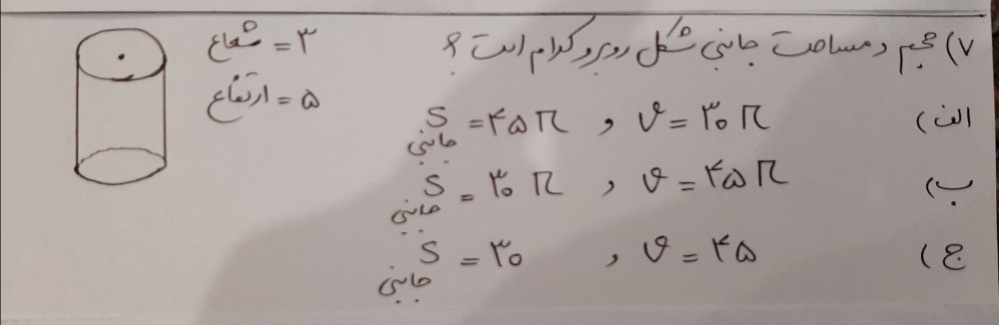 ۷) حجم و مساحت جانبی شکل روبرو کدام است؟
شعاع = ۳
ارتفاع = ۵
الف) V = ۳۰ π , S جانبی = ۴۵ π
ب) V = ۴۵ π , S جانبی = ۳۰ π
ج) V = ۴۵ , S جانبی = ۳۰